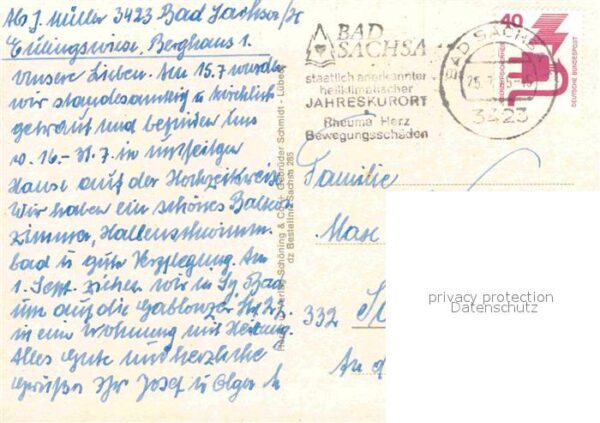 Abs J. Müller 3423 Bad Sachsa/
Eulingswiese, Berghaus 1.
Unsere Lieben. Am 15.7 wurden
wir standesamtlich u kirchlich
getraut und befinden uns
v. 16.-31.7 in
Hause auf der Hochzeitsreise
Wir haben ein schönes Balkon
zimmer, Hallenschwimm
bad u gute Verpflegung. Am
1. Sept. ziehen wir in Bad
um auf die Gablonzer Str 27
in eine Wohnung mit Heizung.
Alles Gute und herzliche
Grüße Ihr Josef u Olga
BAD
SACHSA
staatlich anerkannter
heilklimatischer
JAHRESKURORT
Rheuma Herz
Bewegungsschäden
BAD SACHSA
25.7.
3423
40
DEUTSCHE BUNDESPOST
Schöning & Co + Gebrüder Schmidt - Lübeck
Sachsa 285
Familie
Max
332
An d
privacy protection
Datenschutz